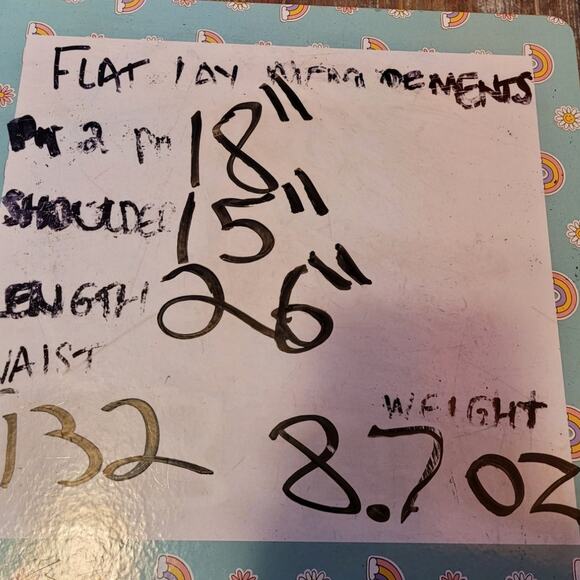 FLAT LAY MEASUREMENTS
Pit 2 Pit 18"
SHOULDER 15"
LENGTH 26"
WAIST
WEIGHT
132 8.7 OZ